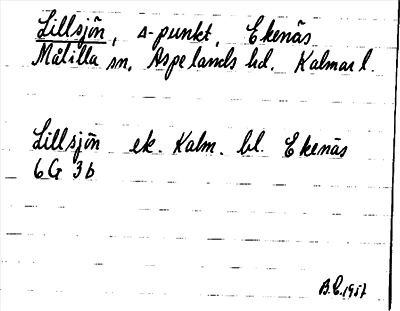 Lillsjön, s-punkt, Ekenäs
Målilla sn, Aspelands hd. Kalmar l.
Lillsjön ek. Kalm. bl. Ekenäs
6G 3b
B.E. 1957